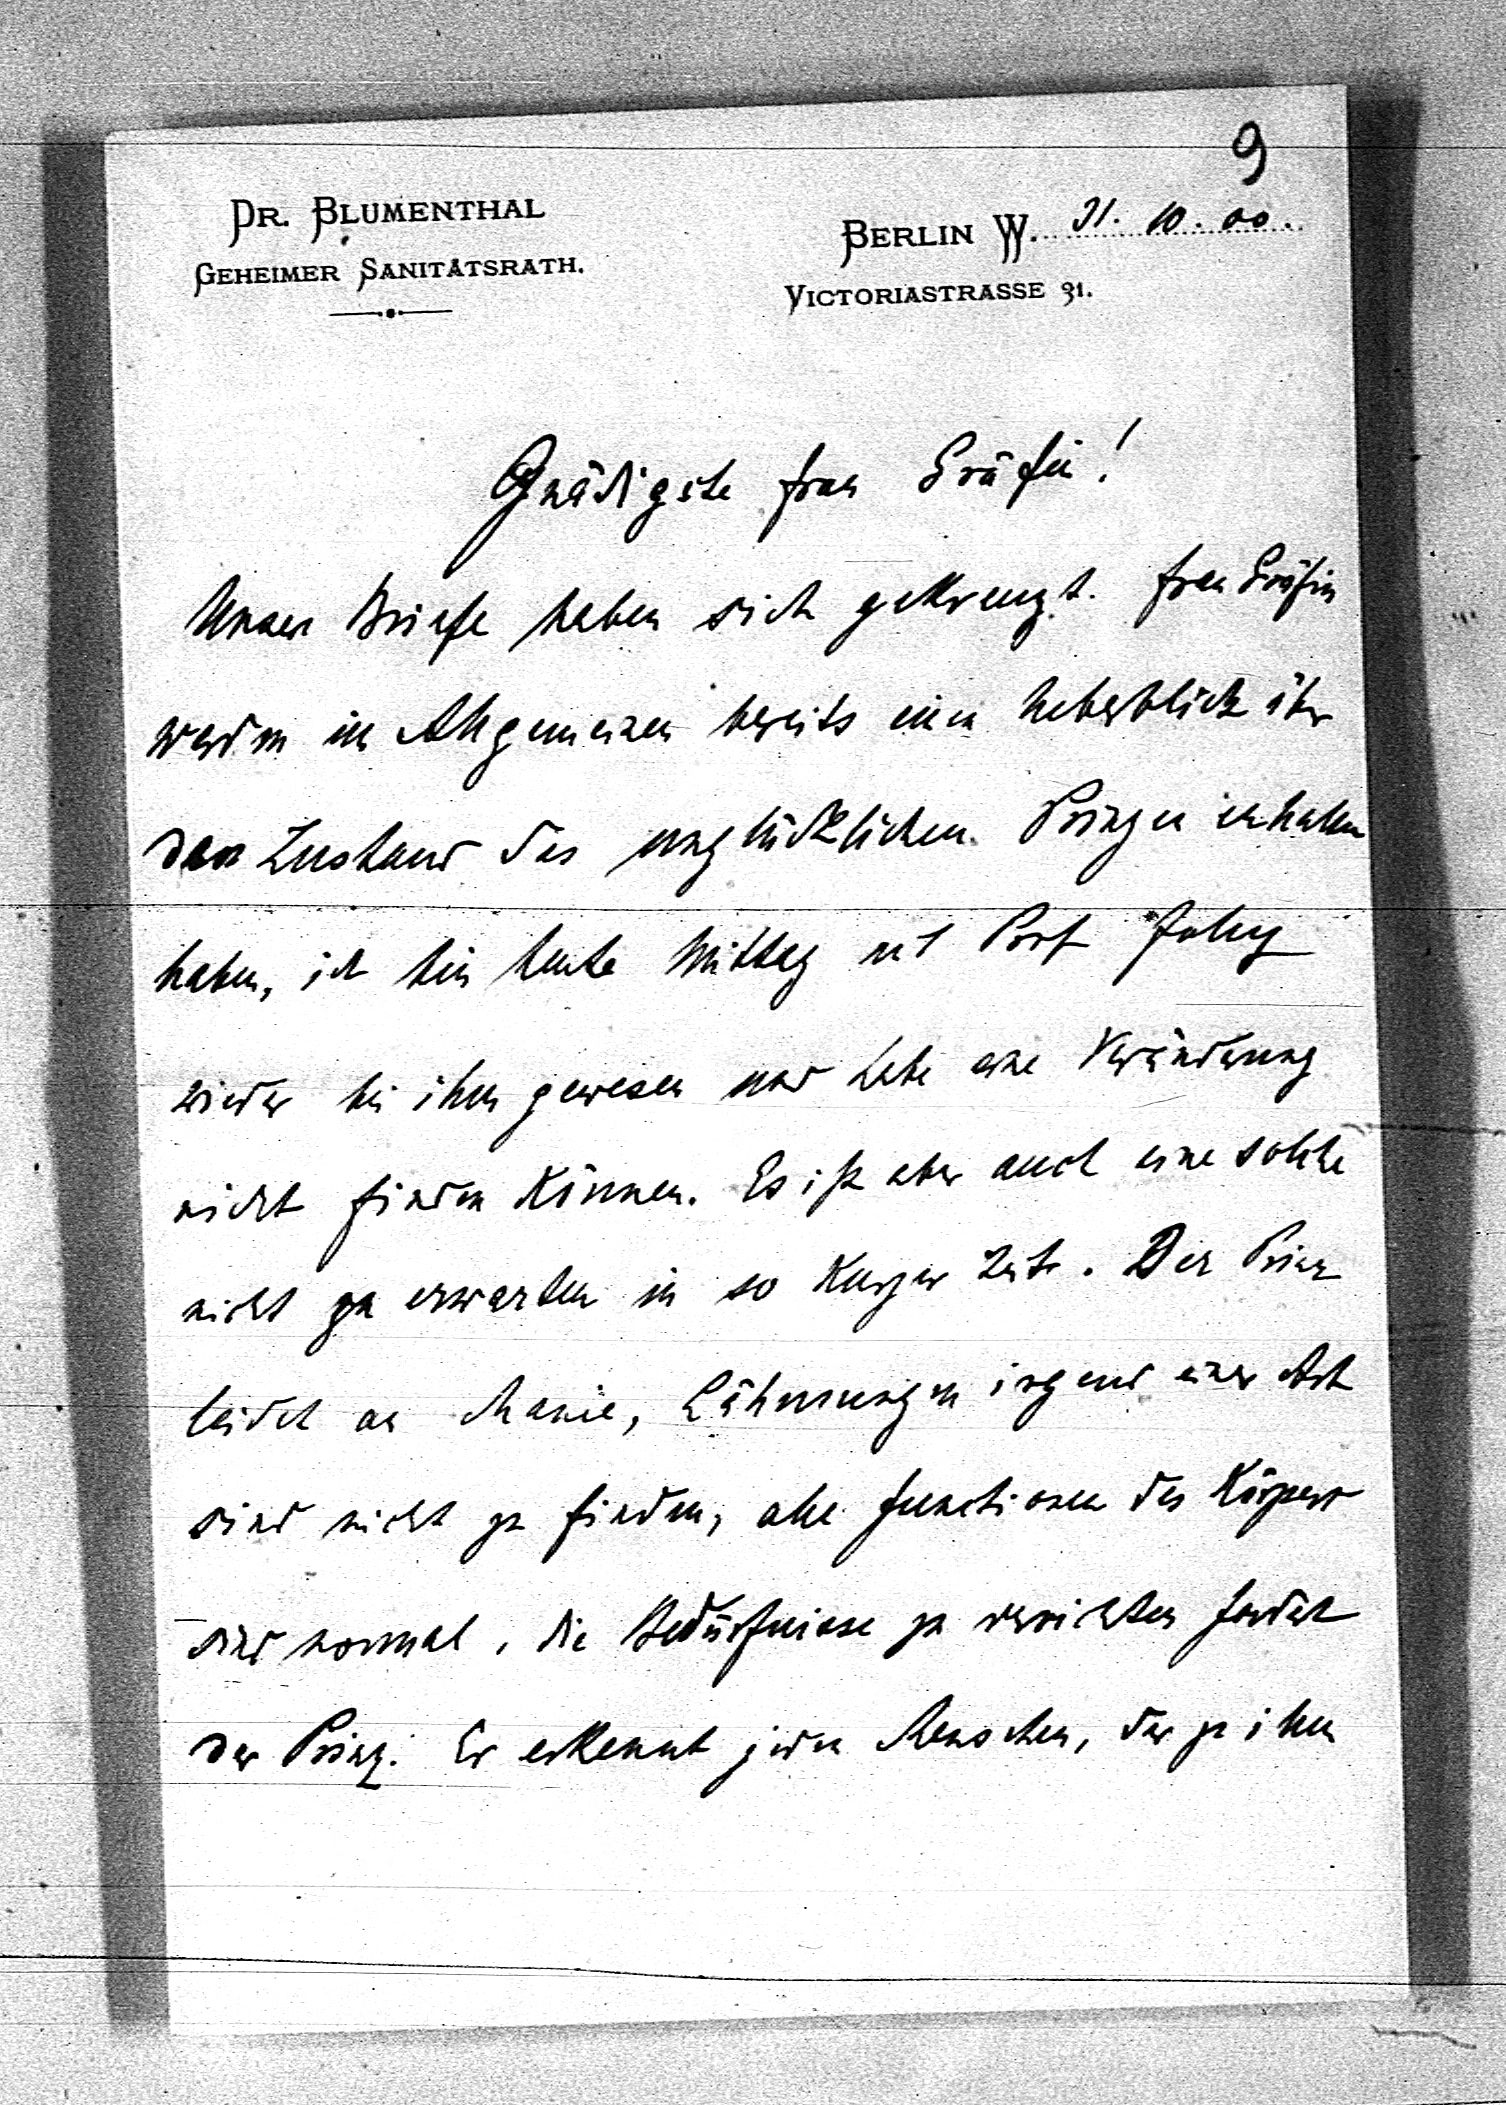 9
DR. BLUMENTHAL
GEHEIMER SANITÄTSRATH.
BERLIN W. 31. 10. 00.
VICTORIASTRASSE 31.
Gnädigste Frau Gräfin!
Unsere Briefe haben sich gekreuzt. Frau Gräfin
werden im Allgemeinen bereits einen Ueberblick über
den Zustand des unglücklichen Prinzen erhalten
haben, ich bin heute Mittag mit Prof Jolly
wieder bei ihm gewesen und habe eine Veränderung
nicht finden können. Es ist aber auch eine solche
nicht zu erwarten in so kurzer Zeit. Der Prinz
leidet an Manie, Lähmungen irgend einer Art
sind nicht zu finden, alle Functionen des Körpers
sind normal, die Bedürfnisse zu verrichten fordert
der Prinz. Er erkennt jeden Menschen, der zu ihm